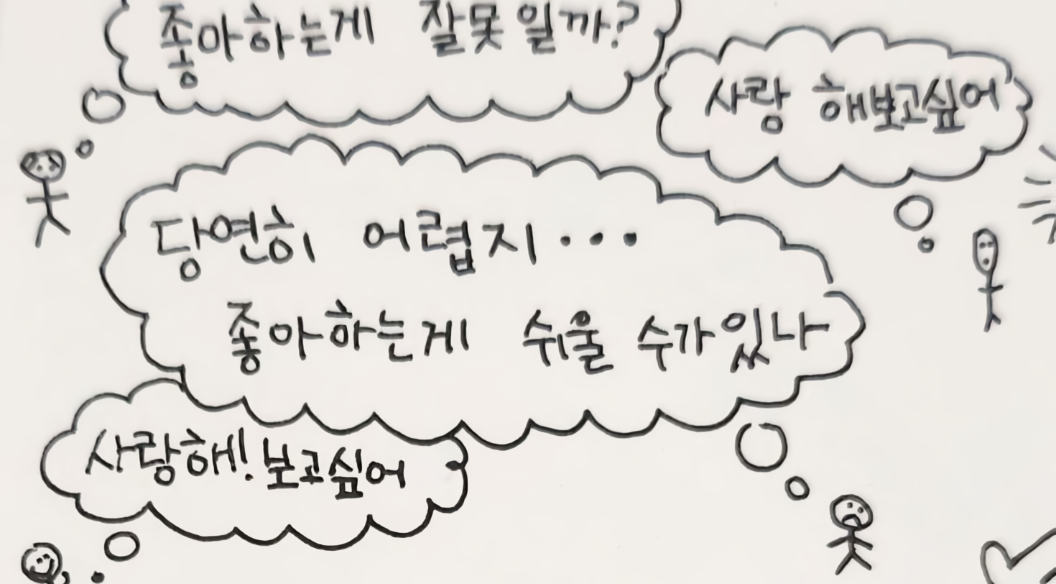 좋아하는게 잘못일까?
사랑 해보고싶어
당연히 어렵지...
좋아하는게 쉬울 수가있나
사랑해! 보고싶어